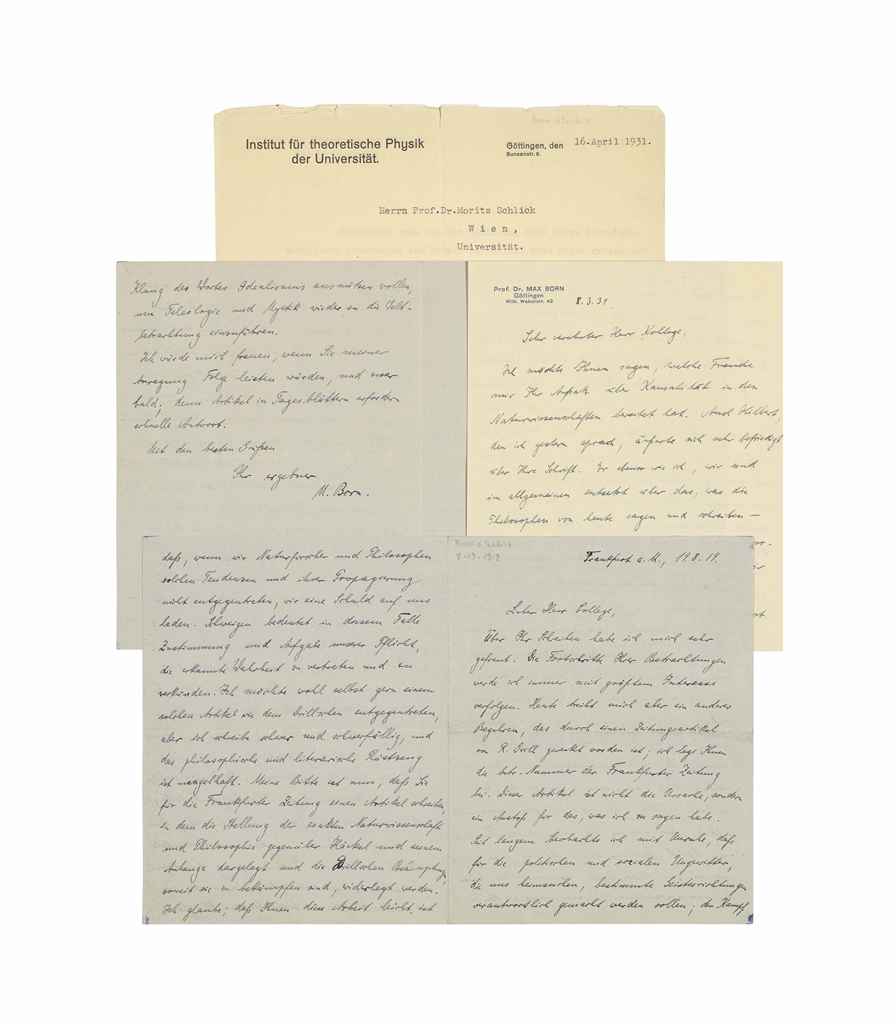 Institut für theoretische Physik
der Universität.
Göttingen, den 16.April 1931.
Bunsenstr. 9.
Herrn Prof.Dr.Moritz Schlick
Wien,
Universität.
Klang des Wortes Idealismus ausnützen wollen,
um Teleologie und Mystik wieder in die Welt-
betrachtung einzuführen.
Ich würde mich freuen, wenn Sie meiner
Anregung Folge leisten würden, und zwar
bald; denn Artikel in Tagesblättern erfordern
schnelle Antwort.
Mit den besten Grüßen
Ihr ergebener
M. Born.
Prof. Dr. MAX BORN
Göttingen
Wilh. Weberstr. 42
8.3.31.
Sehr verehrter Herr Kollege.
Ich möchte Ihnen sagen, welche Freude
mir Ihr Aufsatz über Kausalität in den
Naturwissenschaften bereitet hat. Auch Hilbert,
den ich gestern sprach, äußerte sich sehr befriedigt
über Ihre Schrift. Er ebenso wie ich, wir sind
im allgemeinen entsetzt über das, was die
Philosophen von heute sagen und schreiben —
daß, wenn wir Naturforscher und Philosophen
solchen Tendenzen und ihrer Propagierung
nicht entgegentreten, wir eine Schuld auf uns
laden. Schweigen bedeutet in diesem Falle
Zustimmung und Aufgabe unserer Pflicht,
die erkannte Wahrheit zu vertreten und zu
verkünden. Ich möchte wohl selbst gern einem
solchen Artikel wie dem Drillschen entgegentreten,
aber ich schreibe schwer und schwerfällig, und
das philosophische und literarische Rüstzeug
ist mangelhaft. Meine Bitte ist nun, daß Sie
für die Frankfurter Zeitung einen Artikel schreiben,
in dem die Stellung der exakten Naturwissenschaft
und Philosophie gegenüber Häckel und seinem
Anhange dargelegt und die Drillschen
soweit sie zu bekämpfen sind, widerlegt werden.
Ich glaube, daß Ihnen diese Arbeit leicht ist
Frankfurt a. M., 19.8.19.
Lieber Herr Kollege,
Über Ihr Schreiben habe ich mich sehr
gefreut. Die Fortschritte Ihrer Betrachtungen
werde ich immer mit größtem Interesse
verfolgen. Heute treibt mich aber ein anderes
Begehren, das durch einen Zeitungsartikel
von R. Drill geweckt worden ist; ich lege Ihnen
die betr. Nummer der Frankfurter Zeitung
bei. Dieser Artikel ist nicht die Ursache, sondern
ein Anstoß für das, was ich zu sagen habe.
Seit langem beobachte ich mit Unruhe, daß
für die politischen und sozialen Ungewitter,
die uns heimsuchen, bestimmte Geistesrichtungen
verantwortlich gemacht werden sollen; der Kampf